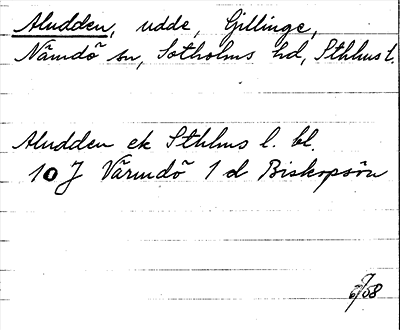 Aludden, udde, Gillinge,
Nämdö sn, Sotholms hd, Sthlms l.
Aludden ek Sthlms l. bl.
10 J Värmdö 1 d Biskopsön